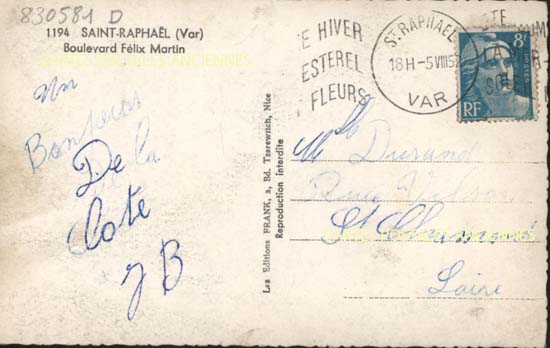 830581 D
1194 SAINT-RAPHAËL (Var)
Boulevard Félix Martin
CARTES POSTALES ANCIENNES
Un
De la
Cote
J B
Les Editions FRANK, 2, Bd. Tzarewitch, Nice
Reproduction interdite
E HIVER
ESTEREL
FLEURS
ST RAPHAEL
18H -5 VIII 52
VAR
8F
POSTES
RF
Durand
Rue
St Chamond
Loire